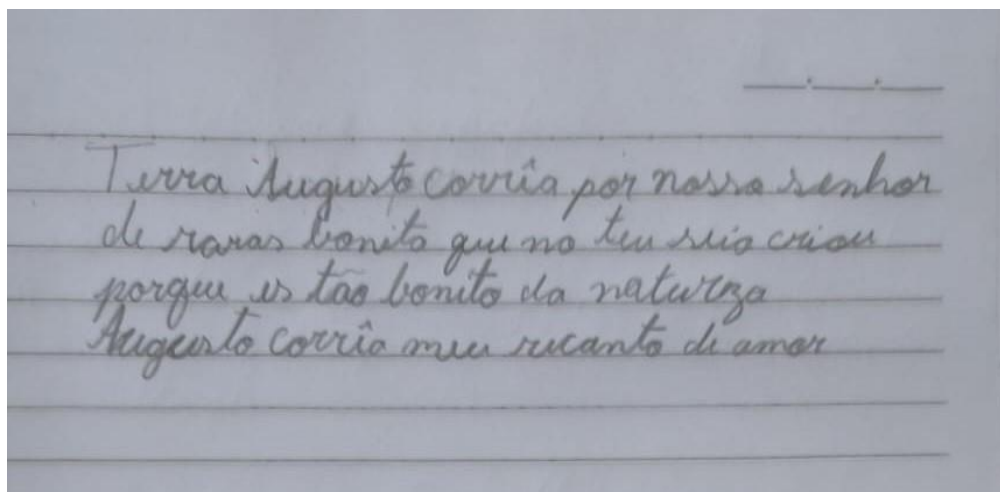 Terra Augusto corrêa por nosso senhor
de raras bonito que no teu seio criou
porque es tão bonito da natureza
Augusto corrêa meu recanto de amor